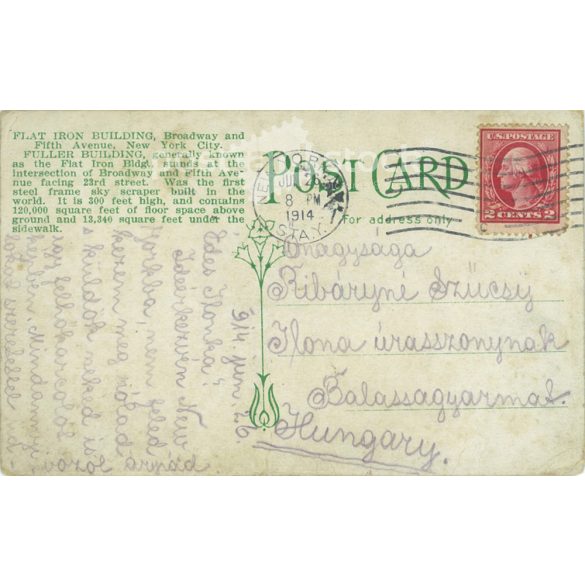 FLAT IRON BUILDING, Broadway and
Fifth Avenue, New York City.
FULLER BUILDING, generally known
as the Flat Iron Bldg., stands at the
intersection of Broadway and Fifth Ave-
nue facing 23rd street. Was the first
steel frame sky scraper built in the
world. It is 300 feet high, and contains
120,000 square feet of floor space above
ground and 13,340 square feet under the
sidewalk.
POST CARD
for address only
NEW YORK
JUN
8 PM
1914
STA.
U.S. POSTAGE
2 CENTS 2
Önagysága
Ribáryné Szücsy
Ilona úrasszonynak
Balassagyarmat.
Hungary.
914 jun 26
Édes Ilonka!
Ideérkezvén New
Jorkba, nem feled
kezem meg rólad
s küldök neked is
egy felhőkarcolót
Mindannyi
szeretettel
árpád